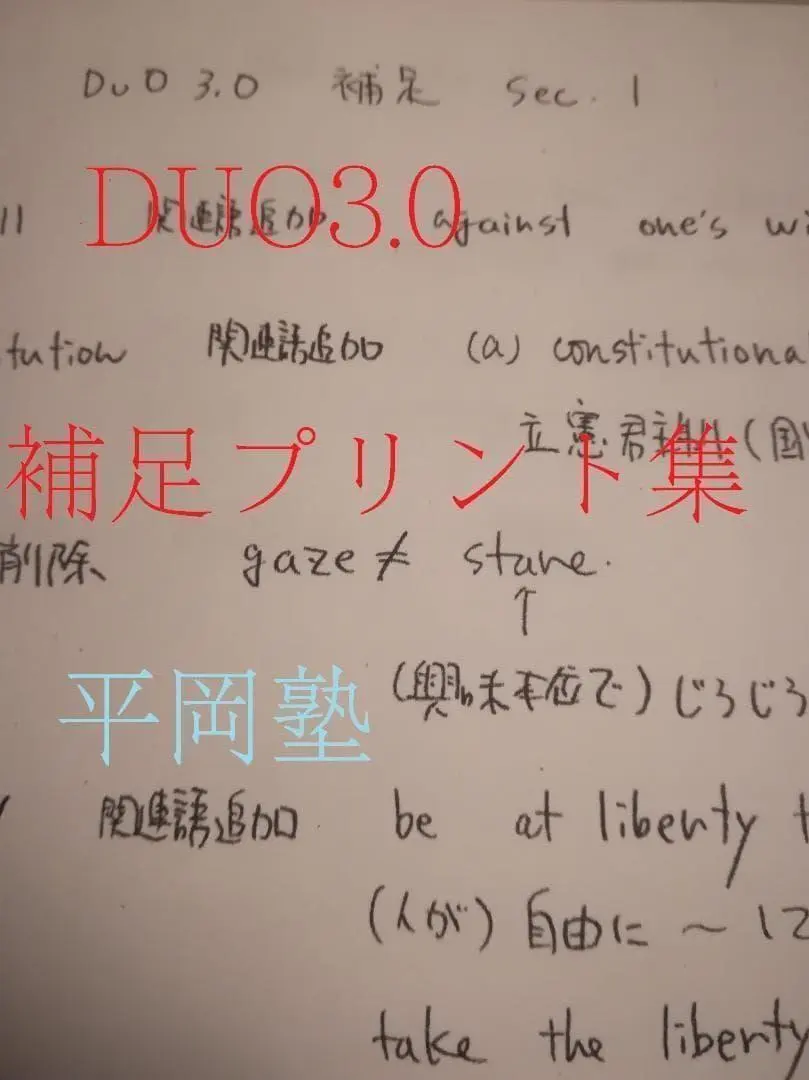 DUO 3.0 補足 Sec. 1
DUO3.0
関連語追加 against one's wi
tution 関連語追加 (a) constitutiona
立憲君主 (国
補足プリント集
削除 gaze ≠ stare.
↑
(興味本位で) じろじろ
平岡塾
関連語追加 be at liberty t
(人が) 自由に ~して
take the liberty